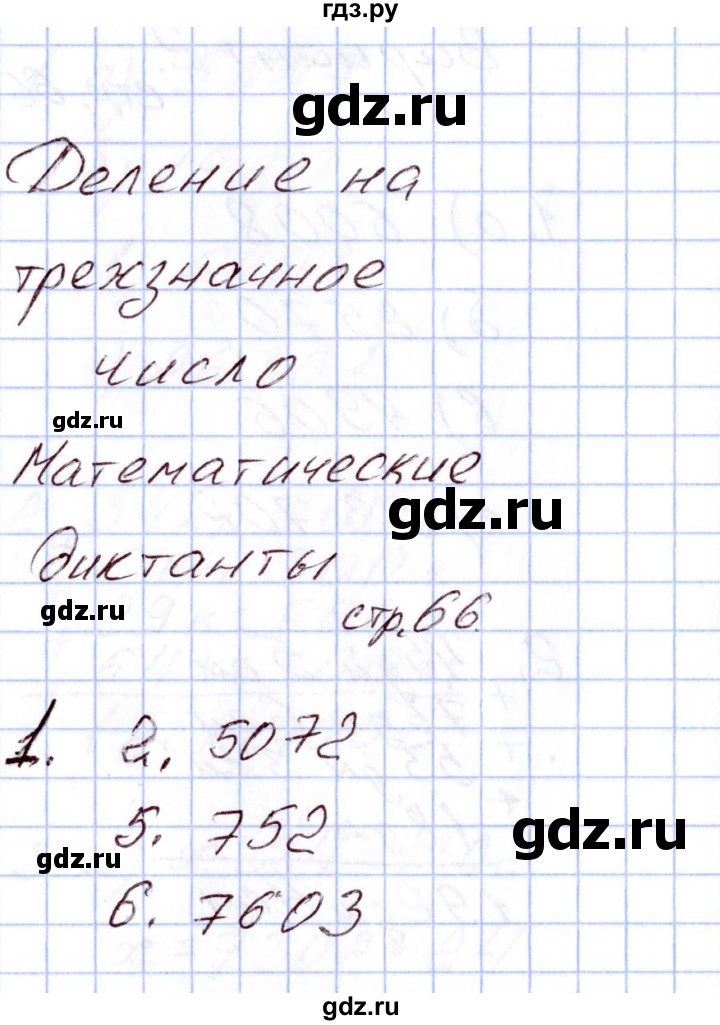 гдз.ру
gdz.ru
Деление на
трехзначное
число
gdz.ru
Математические
gdz.ru
диктанты
gdz.ru
стр.66.
1. 2. 5072
5. 752
gdz.ru
gdz.ru
6. 7603
gdz.ru